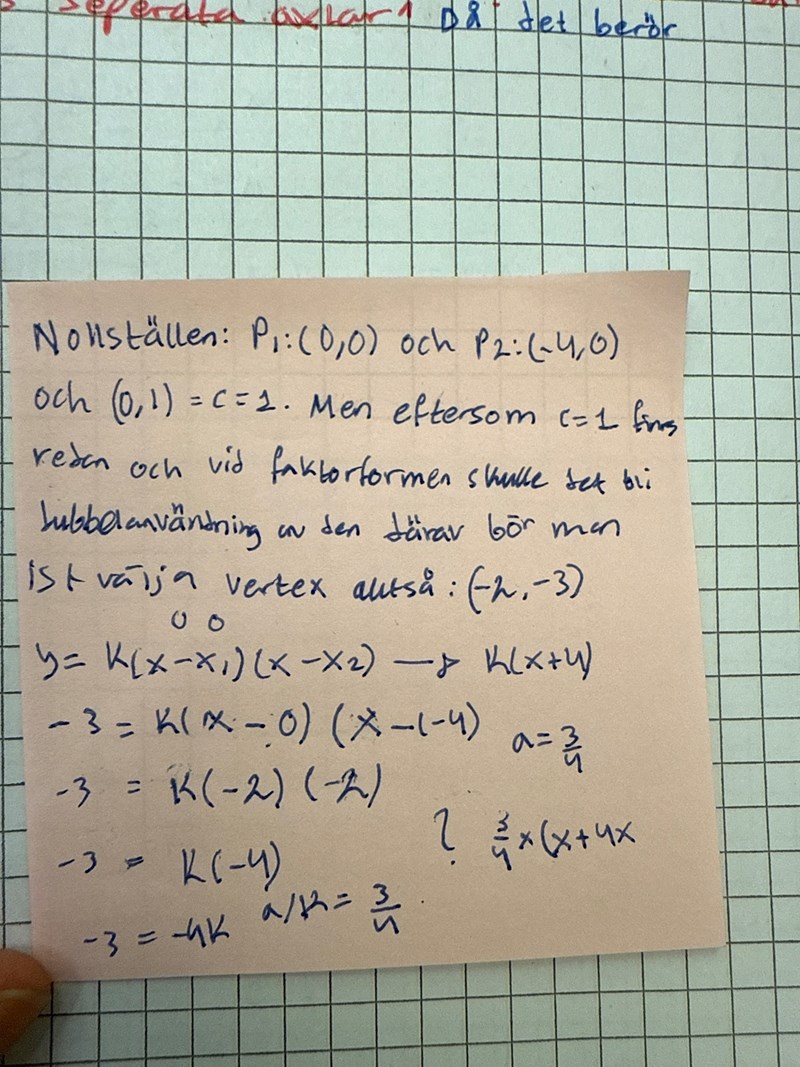 seperata axlar! Då det berör
Nollställen: P₁:(0,0) och P2:(-4,0)
och (0,1) = c=1. Men eftersom c=1 finns
redan och vid faktorformen skulle det bli
dubbelanvändning av den därav bör man
ist välja vertex alltså: (-2,-3)
0 0
y= K(x-x₁)(x-x2) → K(x+4)
-3 = K(x-0) (x-(-4)
a= 3/4
-3 = K(-2) (-2)
? 3/4 x(x+4x
-3 = K(-4)
-3 = -4K a/K = 3/4